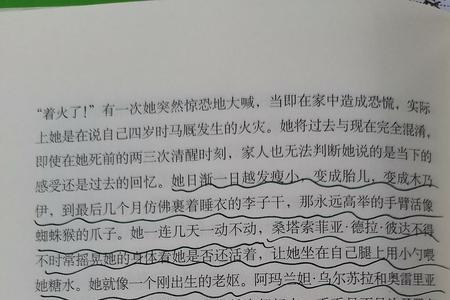 “着火了！”有一次她突然惊恐地大喊，当即在家中造成恐慌，实际
上她是在说自己四岁时马厩发生的火灾。她将过去与现在完全混淆，
即使在她死前的两三次清醒时刻，家人也无法判断她说的是当下的
感受还是过去的回忆。她日渐一日越发瘦小，变成胎儿，变成木乃
伊，到最后几个月仿佛裹着睡衣的李子干，那永远高举的手臂活像
蜘蛛猴的爪子。她一连几天一动不动，桑塔索菲亚·德拉·彼达不得
不时常摇晃她的身体看她是否还活着，让她坐在自己腿上用小勺喂
她糖水。她就像一个刚出生的老妪。阿玛兰妲·乌尔苏拉和奥雷里亚